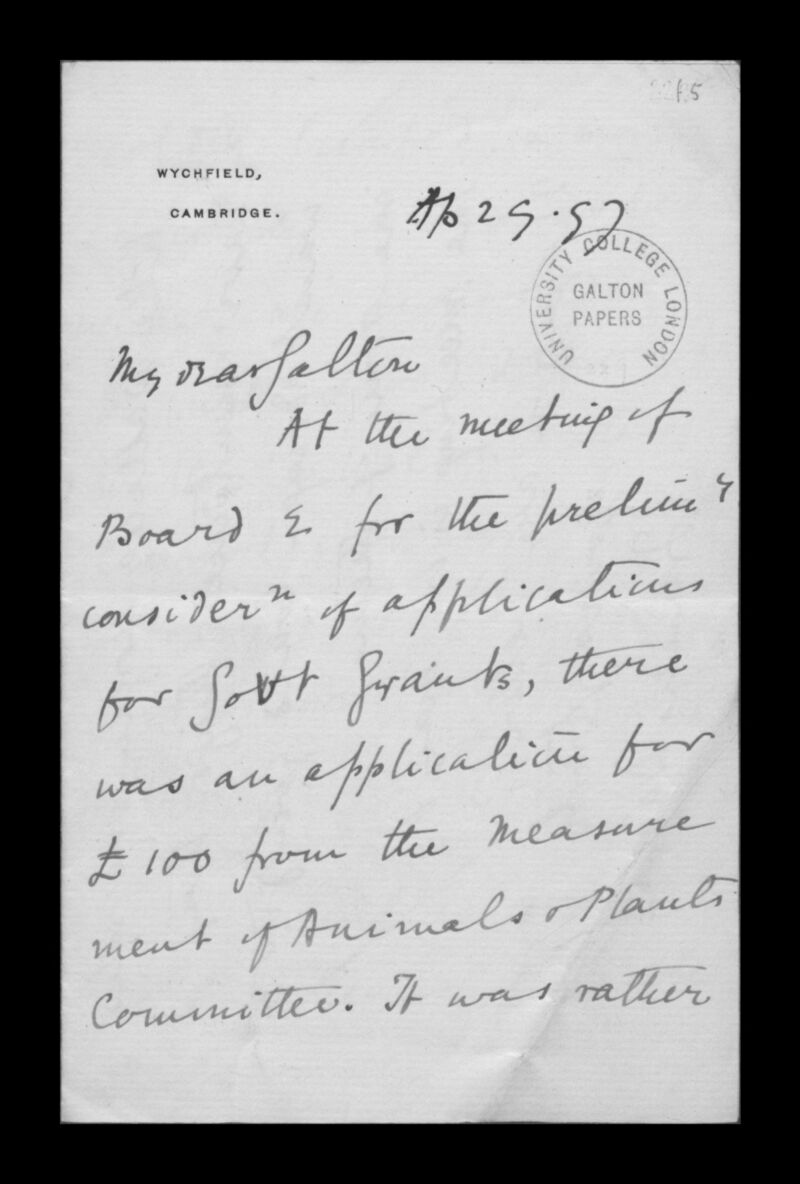 f.5
WYCHFIELD,
CAMBRIDGE.
Ap 29.97
UNIVERSITY COLLEGE LONDON
GALTON
PAPERS
My dear Galton
At the meeting of
Board E for the prelimy
considern of applications
for Govt Grants, there
was an application for
£100 from the Measure
ment of Animals & Plants
Committee. It was rather